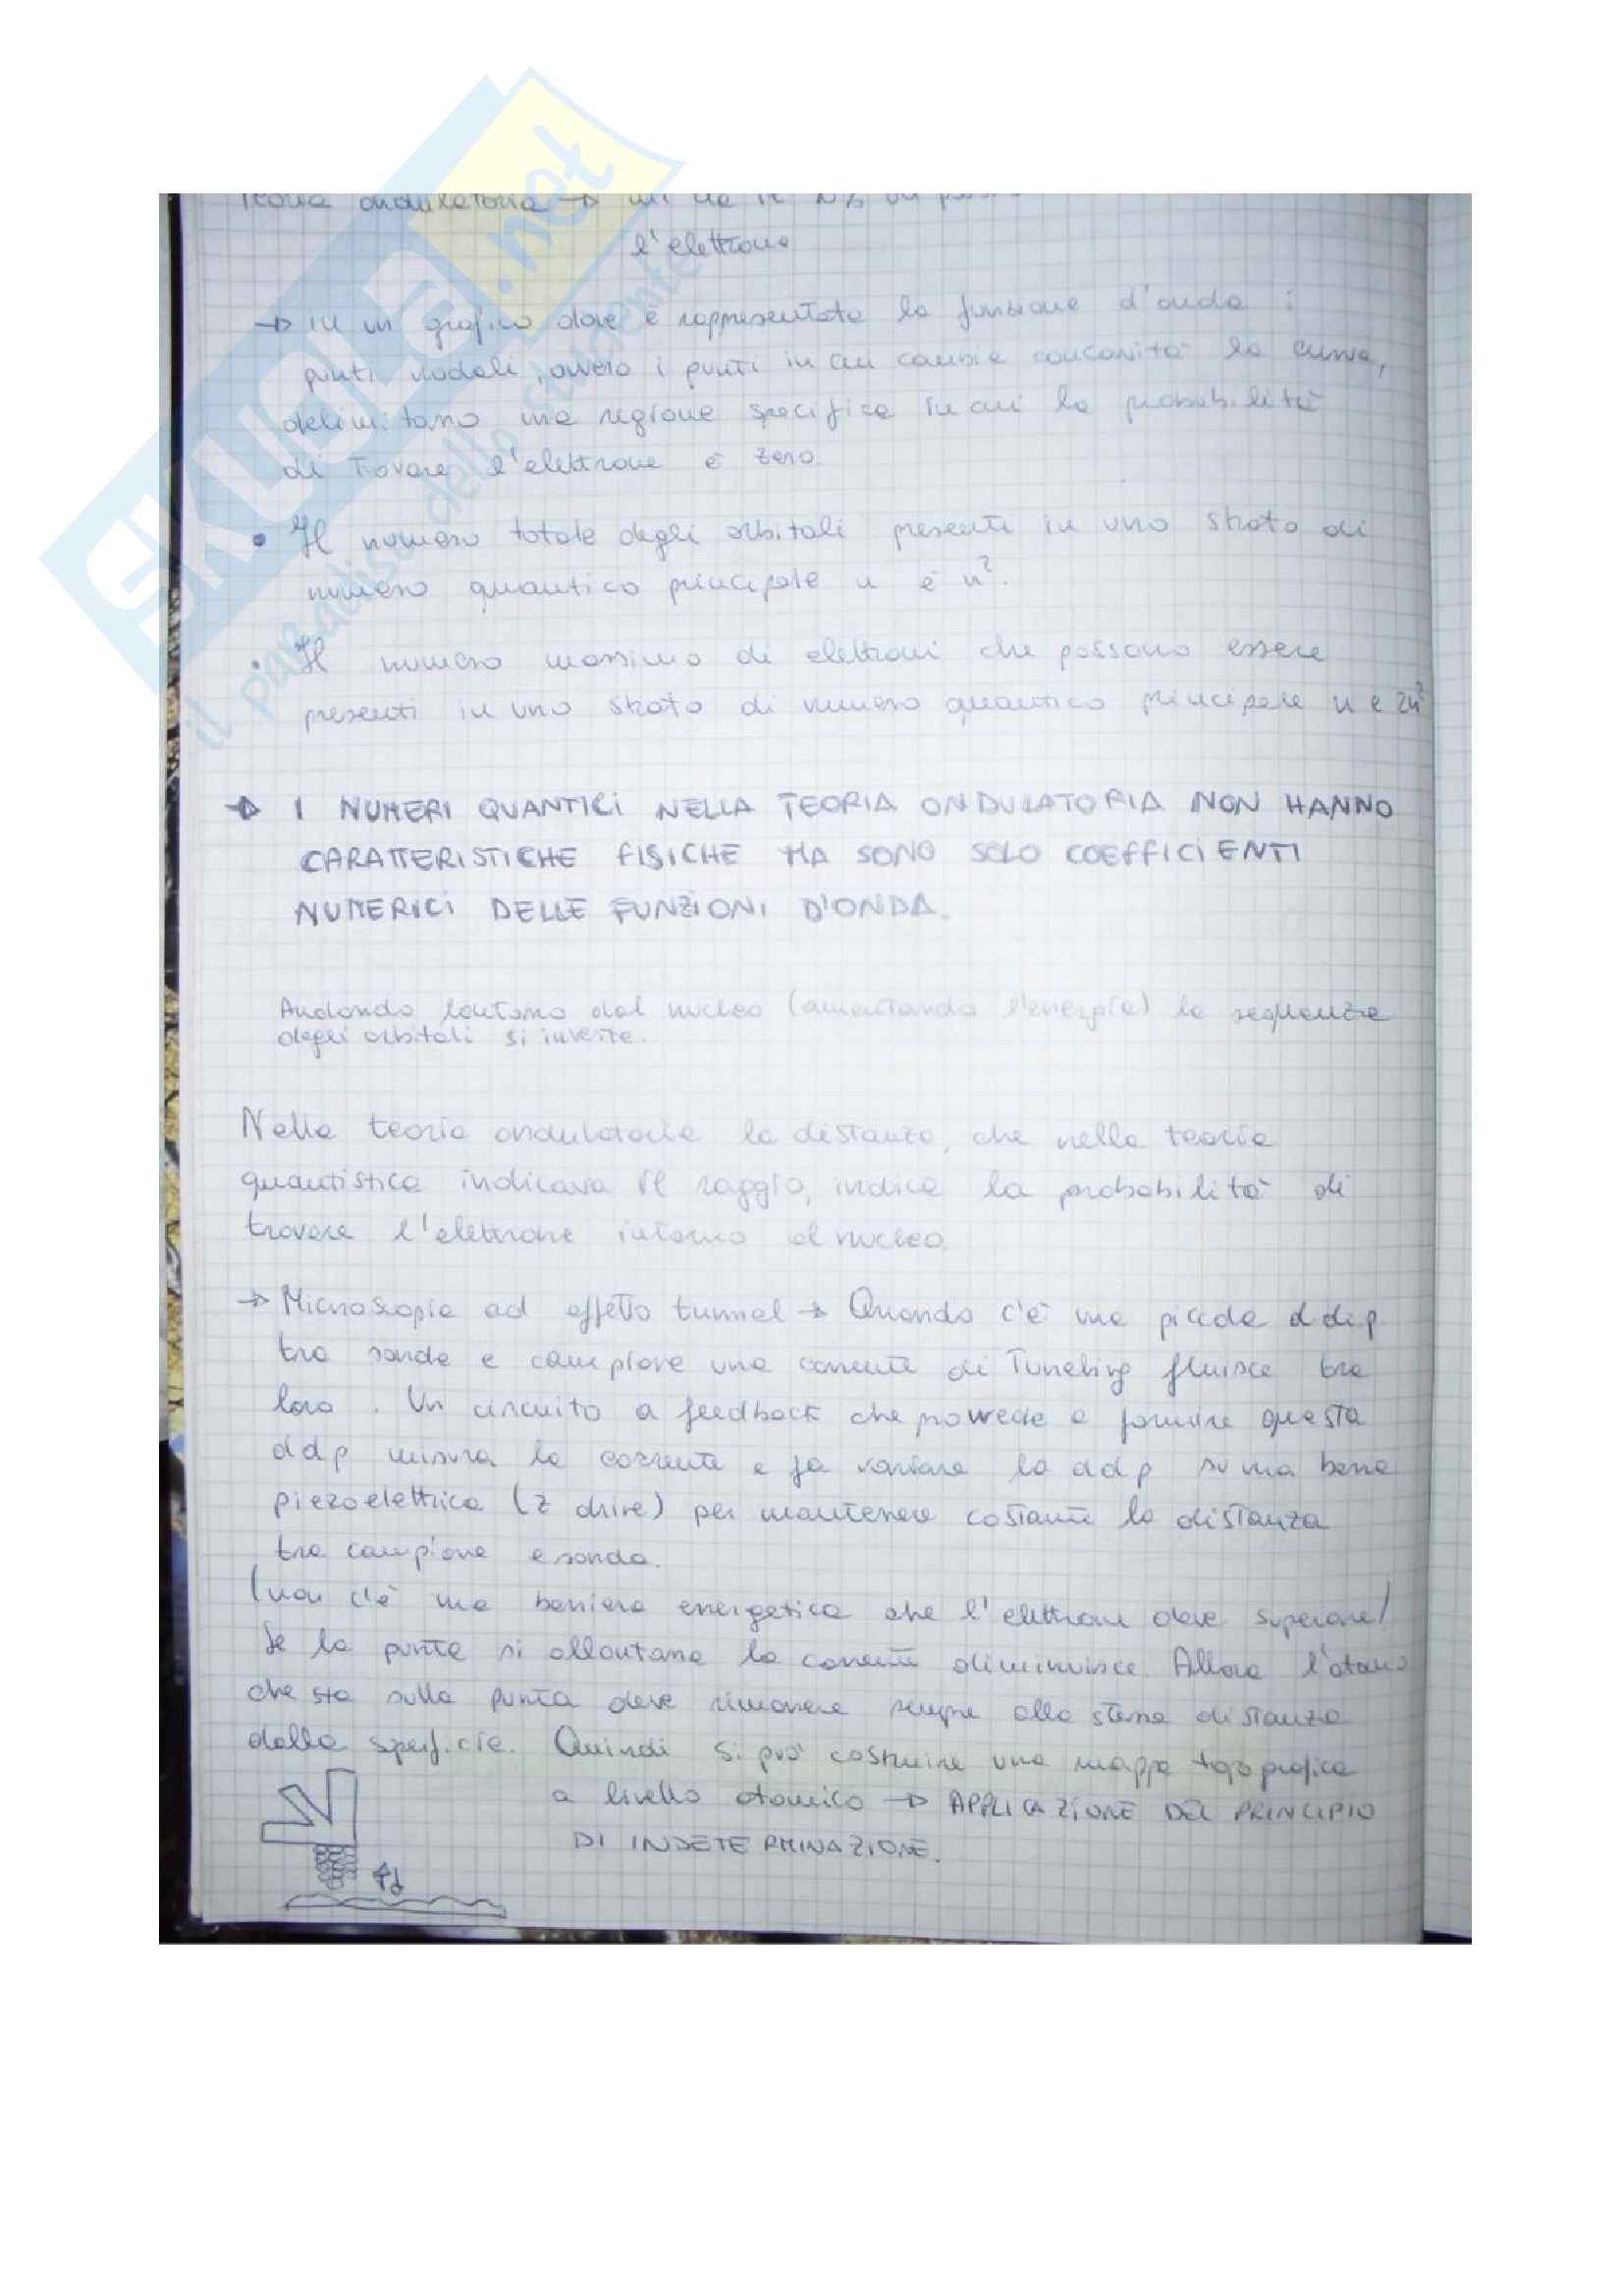 SKUOLA.net
il paradiso dello studente
Teoria ondulatoria →
l'elettrone
→ in un grafico dove è rappresentata la funzione d'onda i
punti nodali, ovvero i punti in cui cambia concavità la curva,
delimitano una regione specifica in cui la probabilità
di trovare l'elettrone è zero.
• Il numero totale degli orbitali presenti in uno strato di
numero quantico principale n è n².
• Il numero massimo di elettroni che possono essere
presenti in uno strato di numero quantico principale n è 2n²
→ I NUMERI QUANTICI NELLA TEORIA ONDULATORIA NON HANNO
CARATTERISTICHE FISICHE MA SONO SOLO COEFFICIENTI
NUMERICI DELLE FUNZIONI D'ONDA.
Andando lontano dal nucleo (aumentando l'energia) la sequenza
degli orbitali si inverte.
Nella teoria ondulatoria la distanza, che nella teoria
quantistica indicava il raggio, indica la probabilità di
trovare l'elettrone intorno al nucleo.
→ Microscopia ad effetto tunnel → Quando c'è una piccola ddp
tra sonda e campione una corrente di Tuneling fluisce tra
loro. Un circuito a feedback che provvede a fornire questa
ddp misura la corrente e fa variare la ddp su una barra
piezoelettrica (z drive) per mantenere costante la distanza
tra campione e sonda.
(non c'è una barriera energetica che l'elettrone deve superare)
Se la punta si allontana la corrente diminuisce. Allora l'atomo
che sta sulla punta deve rimanere sempre alla stessa distanza
dalla superficie. Quindi si può costruire una mappa topografica
a livello atomico → APPLICAZIONE DEL PRINCIPIO
DI INDETERMINAZIONE.
d